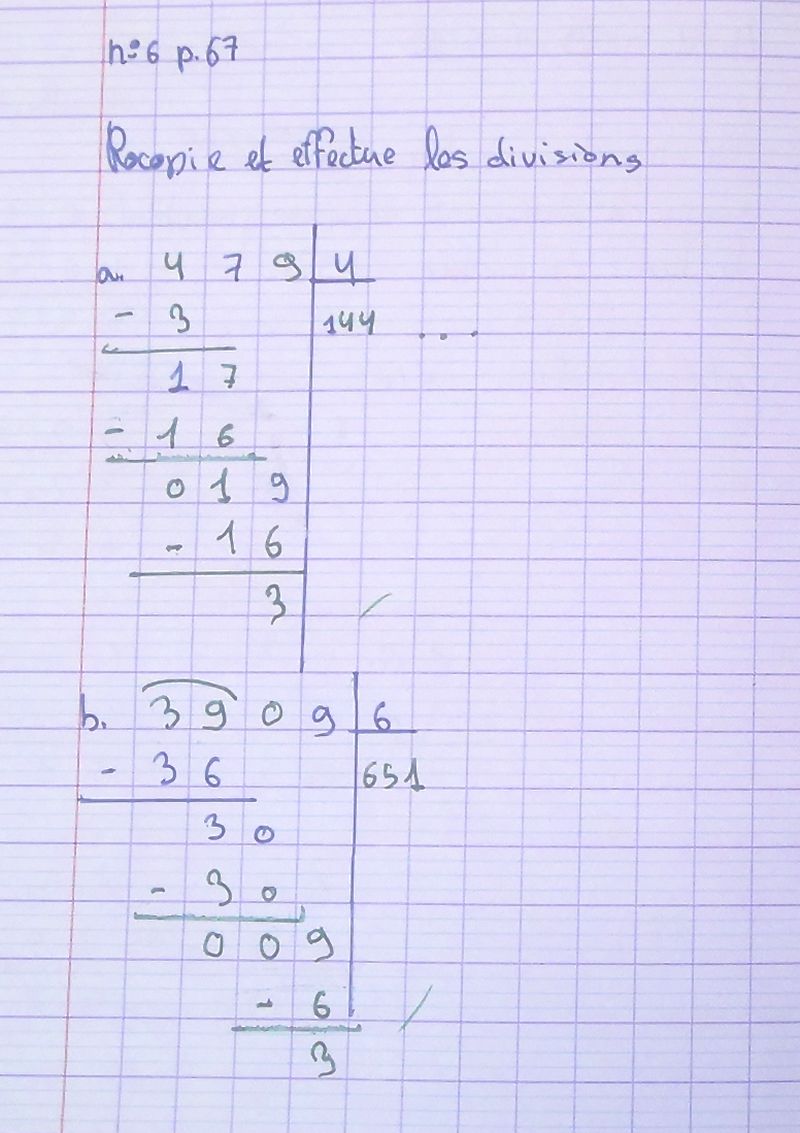 n°6 p.67
Recopie et effectue les divisions
a. 4 7 9 4
- 3 144 ...
1 7
- 1 6
0 1 9
- 1 6
3
b. 3 9 0 9 6
- 3 6 651
3 0
- 3 0
0 0 9
- 6
3